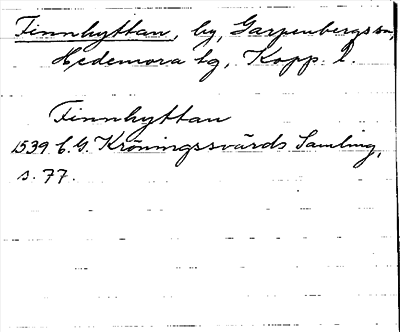 Finnhyttan, by, Garpenbergs sn,
Hedemora tg, Kopp. l.
Finnhyttan
1539 C.G. Kröningssvärds Samling,
s. 77.